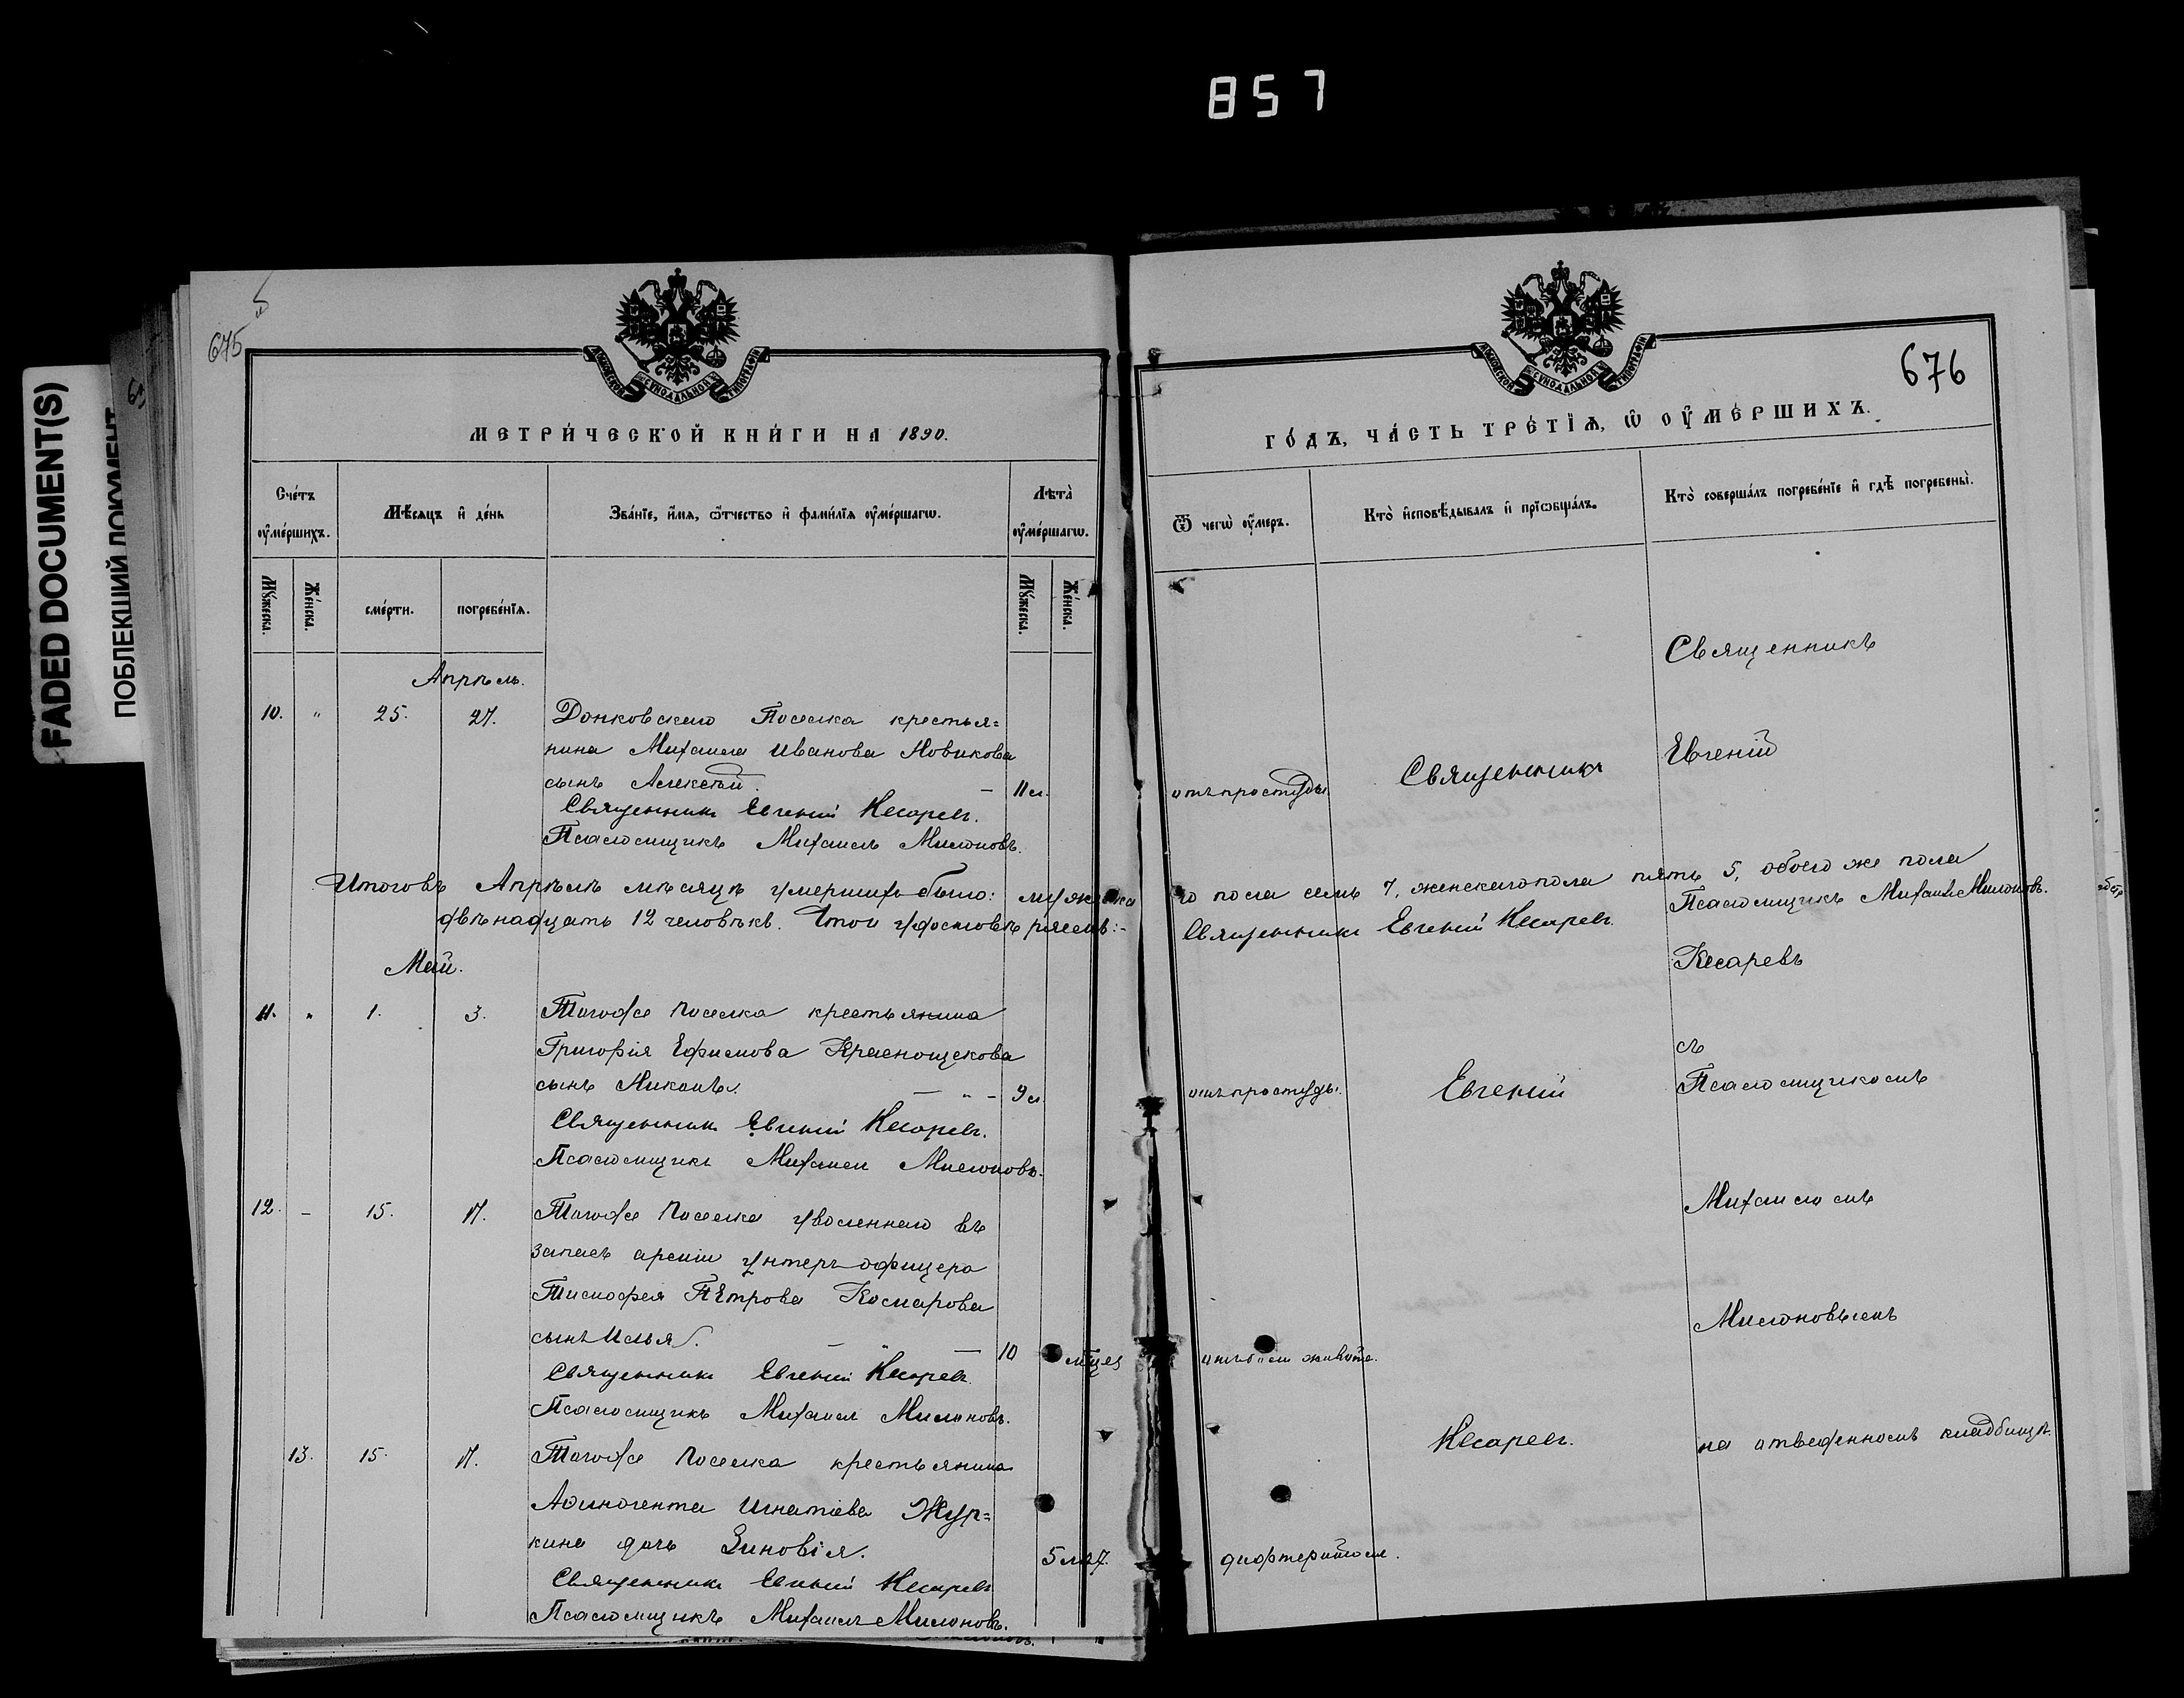 857
FADED DOCUMENT(S)
ПОБЛЕКШИЙ ДОКУМЕНТ
675
МОСКОВСКОЙ СѴНОДАЛЬНОЙ ТИПОГРАФІИ
МЕТРИ́ЧЕСКОЙ КНИ́ГИ НА 1890.
Сче́тъ оу҆ме́ршихъ.
Мѣ́сяцъ и҆ де́нь
Зва́нїе, и҆́мѧ, ѻ҆́тчество и҆ фами́лїѧ оу҆ме́ршагѡ.
Лѣта̀ оу҆ме́ршагѡ.
Мꙋ́жеска.
Же́нска.
сме́рти.
погребе́нїѧ.
Мꙋ́жеска.
Же́нска.
Апрѣль.
10. " 25. 27. Донковскаго Поселка крестья=
нина Михаила Иванова Новикова
сынъ Алексѣй. – 11 л.
Священникъ Евгеній Кесаревъ.
Псаломщикъ Михаилъ Милоновъ.
Итого въ Апрѣлѣ мѣсяцѣ умершихъ было: мужска
двѣнадцать 12 человѣкъ. Въ томъ удостовѣряемъ:-
Май.
11. " 1. 3. Тогоже Поселка крестьянина
Григорія Ефимова Краснощекова
сынъ — " – 9 л.
Священникъ Евгеній Кесаревъ.
Псаломщикъ Михаилъ Милоновъ.
12. – 15. 17. Тогоже Поселка уволеннаго въ
запасъ арміи унтеръ-офицера
Тимофея Петрова Комарова
сынъ Илья. — " — 10 мѣсяц
Священникъ Евгеній Кесаревъ
Псаломщикъ Михаилъ Милоновъ.
13. 15. 17. Тогоже Поселка крестьянина
Аѳиногента Игнатіева Жур=
кина дочь Зиновія. 5 лѣт.
Священникъ Евгеній Кесаревъ
Псаломщикъ Михаилъ Милоновъ.
МОСКОВСКОЙ СѴНОДАЛЬНОЙ ТИПОГРАФІИ
676
ГО́ДЪ, ЧА́СТЬ ТРЕ́ТЇѦ, Ѡ҆ ОУ҆МЕ́РШИХЪ.
Ѿ чегѡ̀ оу҆́меръ.
Кто̀ и҆сповѣ́дывалъ и҆ прїѡбща́лъ.
Кто̀ соверша́лъ погребе́нїе и҆ гдѣ̀ погребены̀.
Священникъ
Евгеній
отъ простуды. Священникъ
го пола семь 7, женскаго пола пять 5, обоего же пола
Священникъ Евгеній Кесаревъ. Псаломщикъ Михаилъ Милоновъ.
Кесаревъ
съ
отъ простуды. Евгеній Псаломщикомъ
Михаиломъ
Милоновымъ
отъ боли живота.
Кесаревъ. на отведенномъ кладбищѣ.